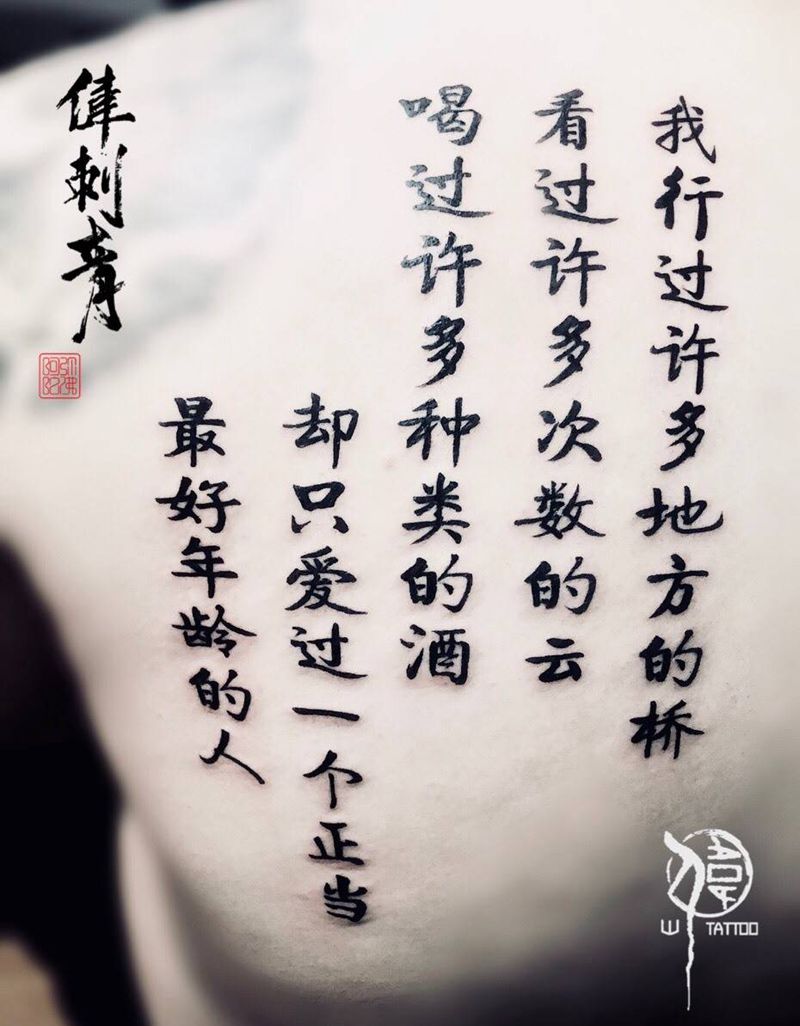 我行过许多地方的桥
看过许多次数的云
喝过许多种类的酒
却只爱过一个正当
最好年龄的人
伟刺青
W TATTOO